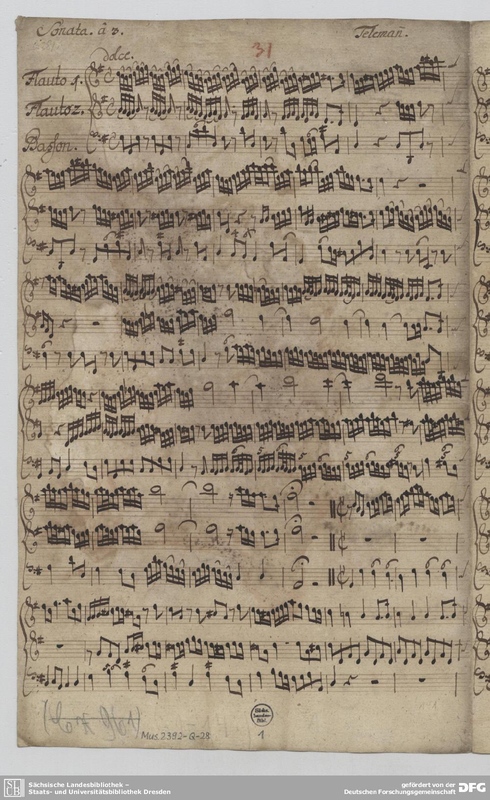 Sonata. à 3. Teleman̄.
31
dolce.
Flauto 1.
Flauto 2.
Basson.
Mus 2392-Q-28
1
SLUB
Sächsische Landesbibliothek –
Staats- und Universitätsbibliothek Dresden
gefördert von der
Deutschen Forschungsgemeinschaft
DFG